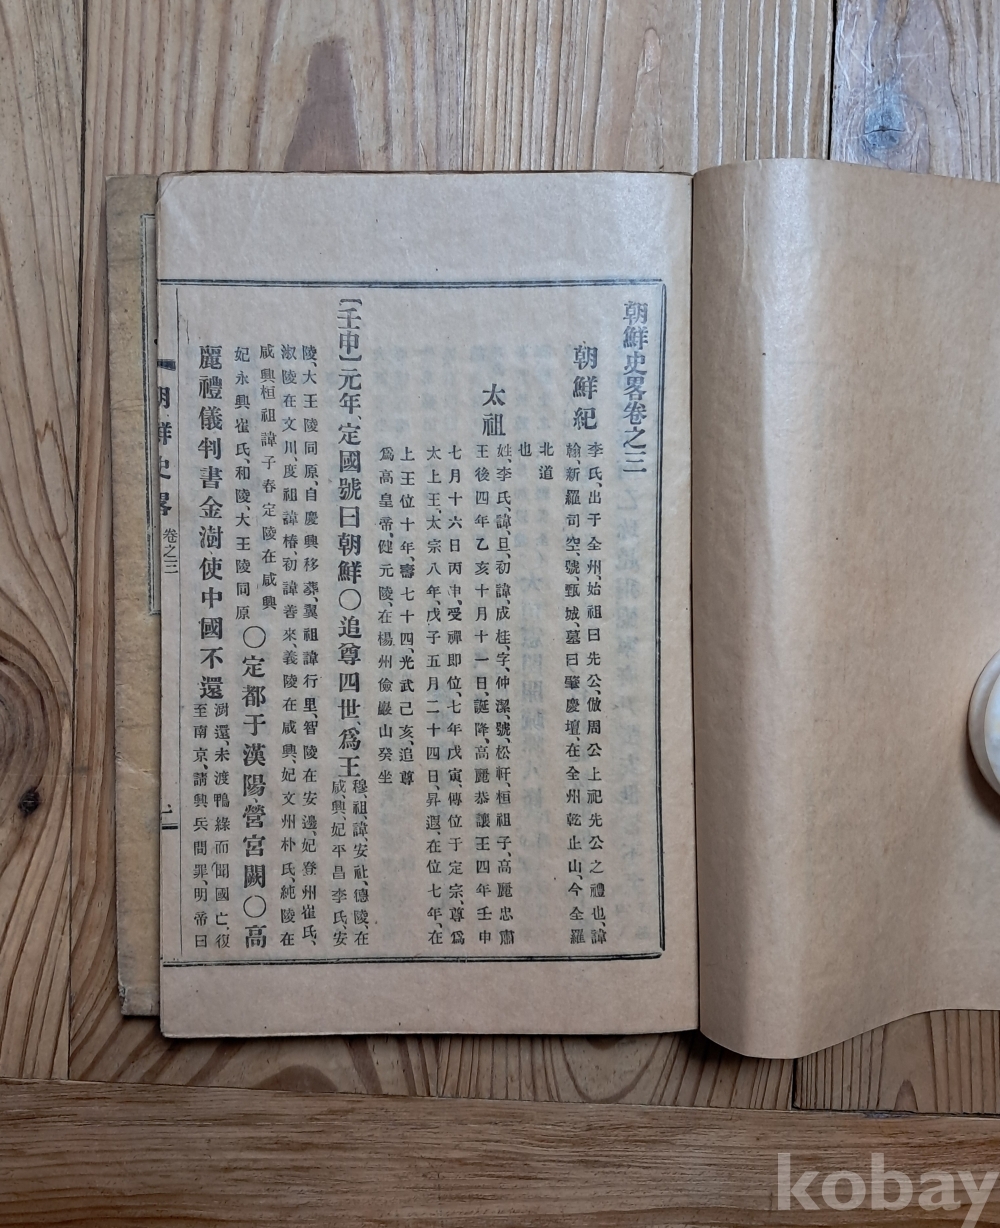 朝鮮史畧卷之三
朝鮮紀
李氏、出于全州、始祖曰先公、倣周公上祀先公之禮也、諱
翰、新羅司空、號、甄城、墓曰肇慶壇、在全州乾止山、今全羅
北道
也
太祖
姓、李氏、諱、旦、初諱、成桂、字、仲潔、號、松軒、桓祖子、高麗忠肅
王後四年乙亥十月十一日、誕降、高麗恭讓王四年壬申
七月十六日丙申、受禪即位、七年戊寅、傳位于定宗、尊爲
太上王、太宗八年、戊子五月二十四日、昇遐、在位七年、在
上王位十年、壽七十四、光武己亥、追尊
爲高皇帝、健元陵、在楊州儉巖山癸坐
〔壬申〕元年、定國號曰朝鮮〇追尊四世、爲王
穆、祖、諱、安社、德陵、在
咸、興、妃平昌李氏、安
陵、大王陵同原、自慶興移葬、翼祖諱行里、智陵在安邊、妃登州崔氏、
淑陵在文川、度祖諱椿、初諱善來、義陵在咸興、妃文州朴氏、純陵在
咸興桓祖諱子春定陵在咸興
妃永興崔氏、和陵、大王陵同原
〇定都于漢陽、營宮闕〇高
麗禮儀判書金澍、使中國不還
澍還、未渡鴨綠而聞國亡、復
至南京、請興兵問罪、明帝曰
朝鮮史畧
卷之三
一
kobay